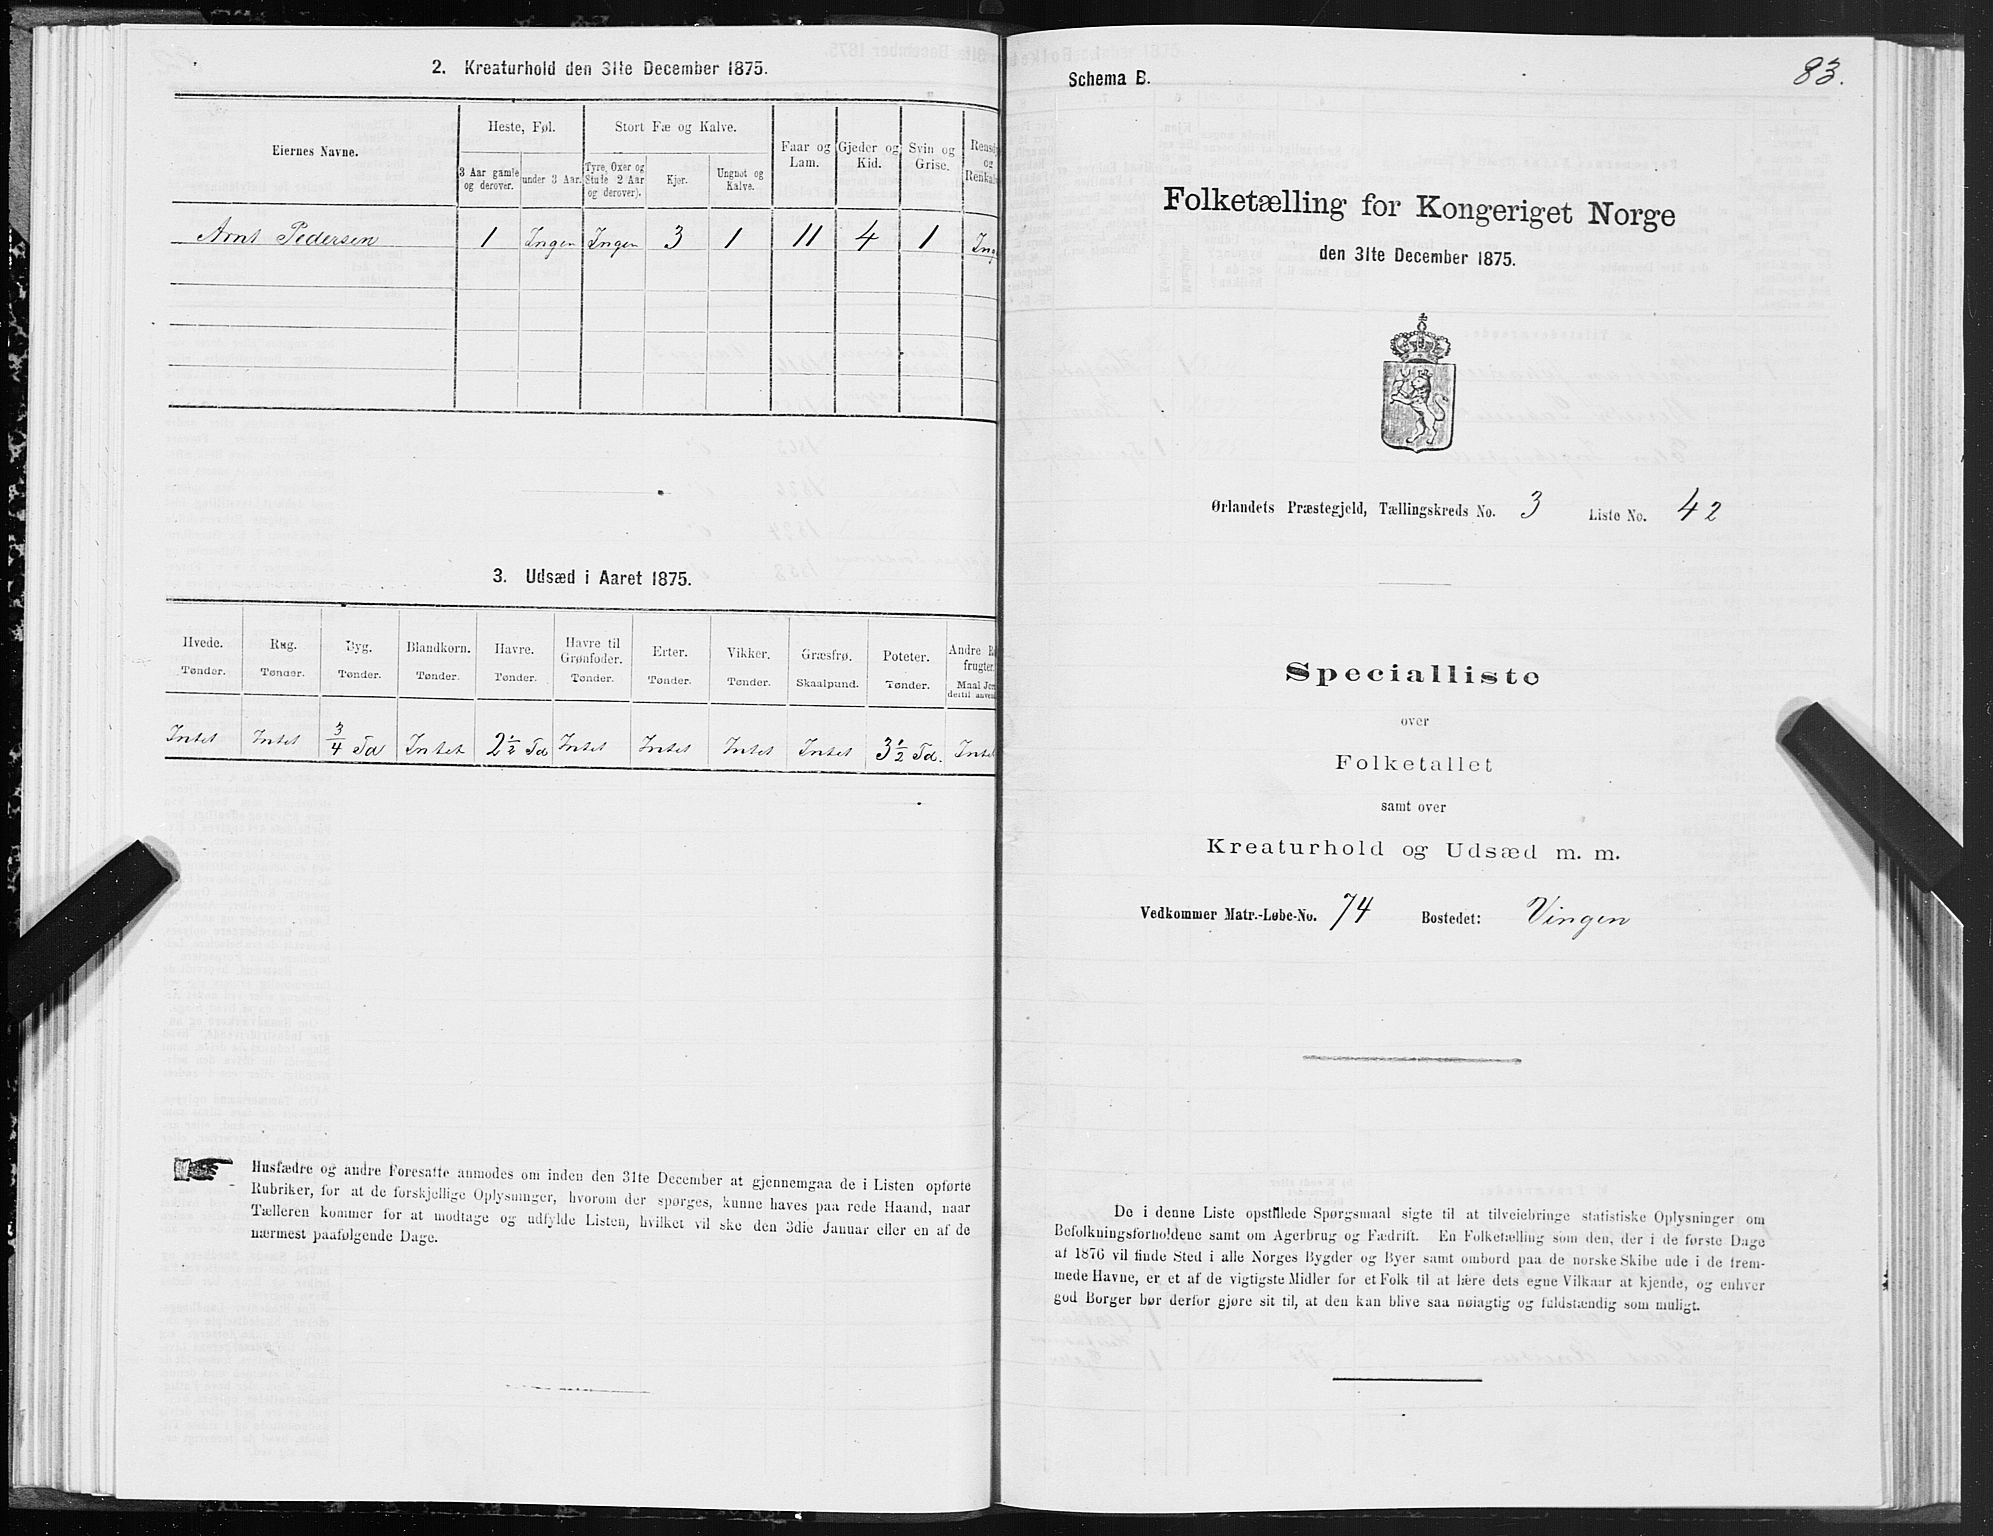 2. Kreaturhold den 31te December 1875.
Eiernes Navne.
Heste, Føl.
3 Aar gamle og derover.
under 3 Aar.
Stort Fæ og Kalve.
Tyre, Oxer og Stute 2 Aar og derover).
Kjør.
Ungnøt og Kalve.
Faar og Lam.
Gjeder og Kid.
Svin og Grise.
Rensd
og
Renkal
Arnt Pedersen 1 Ingen Ingen 3 1 11 4 1 Ing
3. Udsæd i Aaret 1875.
Hvede. Rug. Byg. Blandkorn. Havre. Havre til Grønfoder. Erter. Vikker. Græsfrø. Poteter. Andre R
frugter.
Tønder. Tønder. Tønder. Tønder. Tønder. Tønder. Tønder. Tønder. Skaalpund. Tønder. Maal Jor
dertil anven
Intet Intet 3/4 Td Intet 2 1/2 Td Intet Intet Intet Intet 3 1/2 Td. Intet
Husfædre og andre Foresatte anmodes om inden den 31te December at gjennemgaa de i Listen opførte
Rubriker, for at de forskjellige Oplysninger, hvorom der spørges, kunne haves paa rede Haand, naar
Tælleren kommer for at modtage og udfylde Listen, hvilket vil ske den 3die Januar eller en af de
nærmest paafølgende Dage.
83.
Schema B.
Folketælling for Kongeriget Norge
den 31te December 1875.
Ørlandets Præstegjeld, Tællingskreds No. 3 Liste No. 42
Specialliste
over
Folketallet
samt over
Kreaturhold og Udsæd m. m.
Vedkommer Matr.-Løbe-No. 74 Bostedet: Vingen
De i denne Liste opstillede Spørgsmaal sigte til at tilveiebringe statistiske Oplysninger om
Befolkningsforholdene samt om Agerbrug og Fædrift. En Folketælling som den, der i de første Dage
af 1876 vil finde Sted i alle Norges Bygder og Byer samt ombord paa de norske Skibe ude i de frem-
mede Havne, er et af de vigtigste Midler for et Folk til at lære dets egne Vilkaar at kjende, og enhver
god Borger bør derfor gjøre sit til, at den kan blive saa nøiagtig og fuldstændig som muligt.